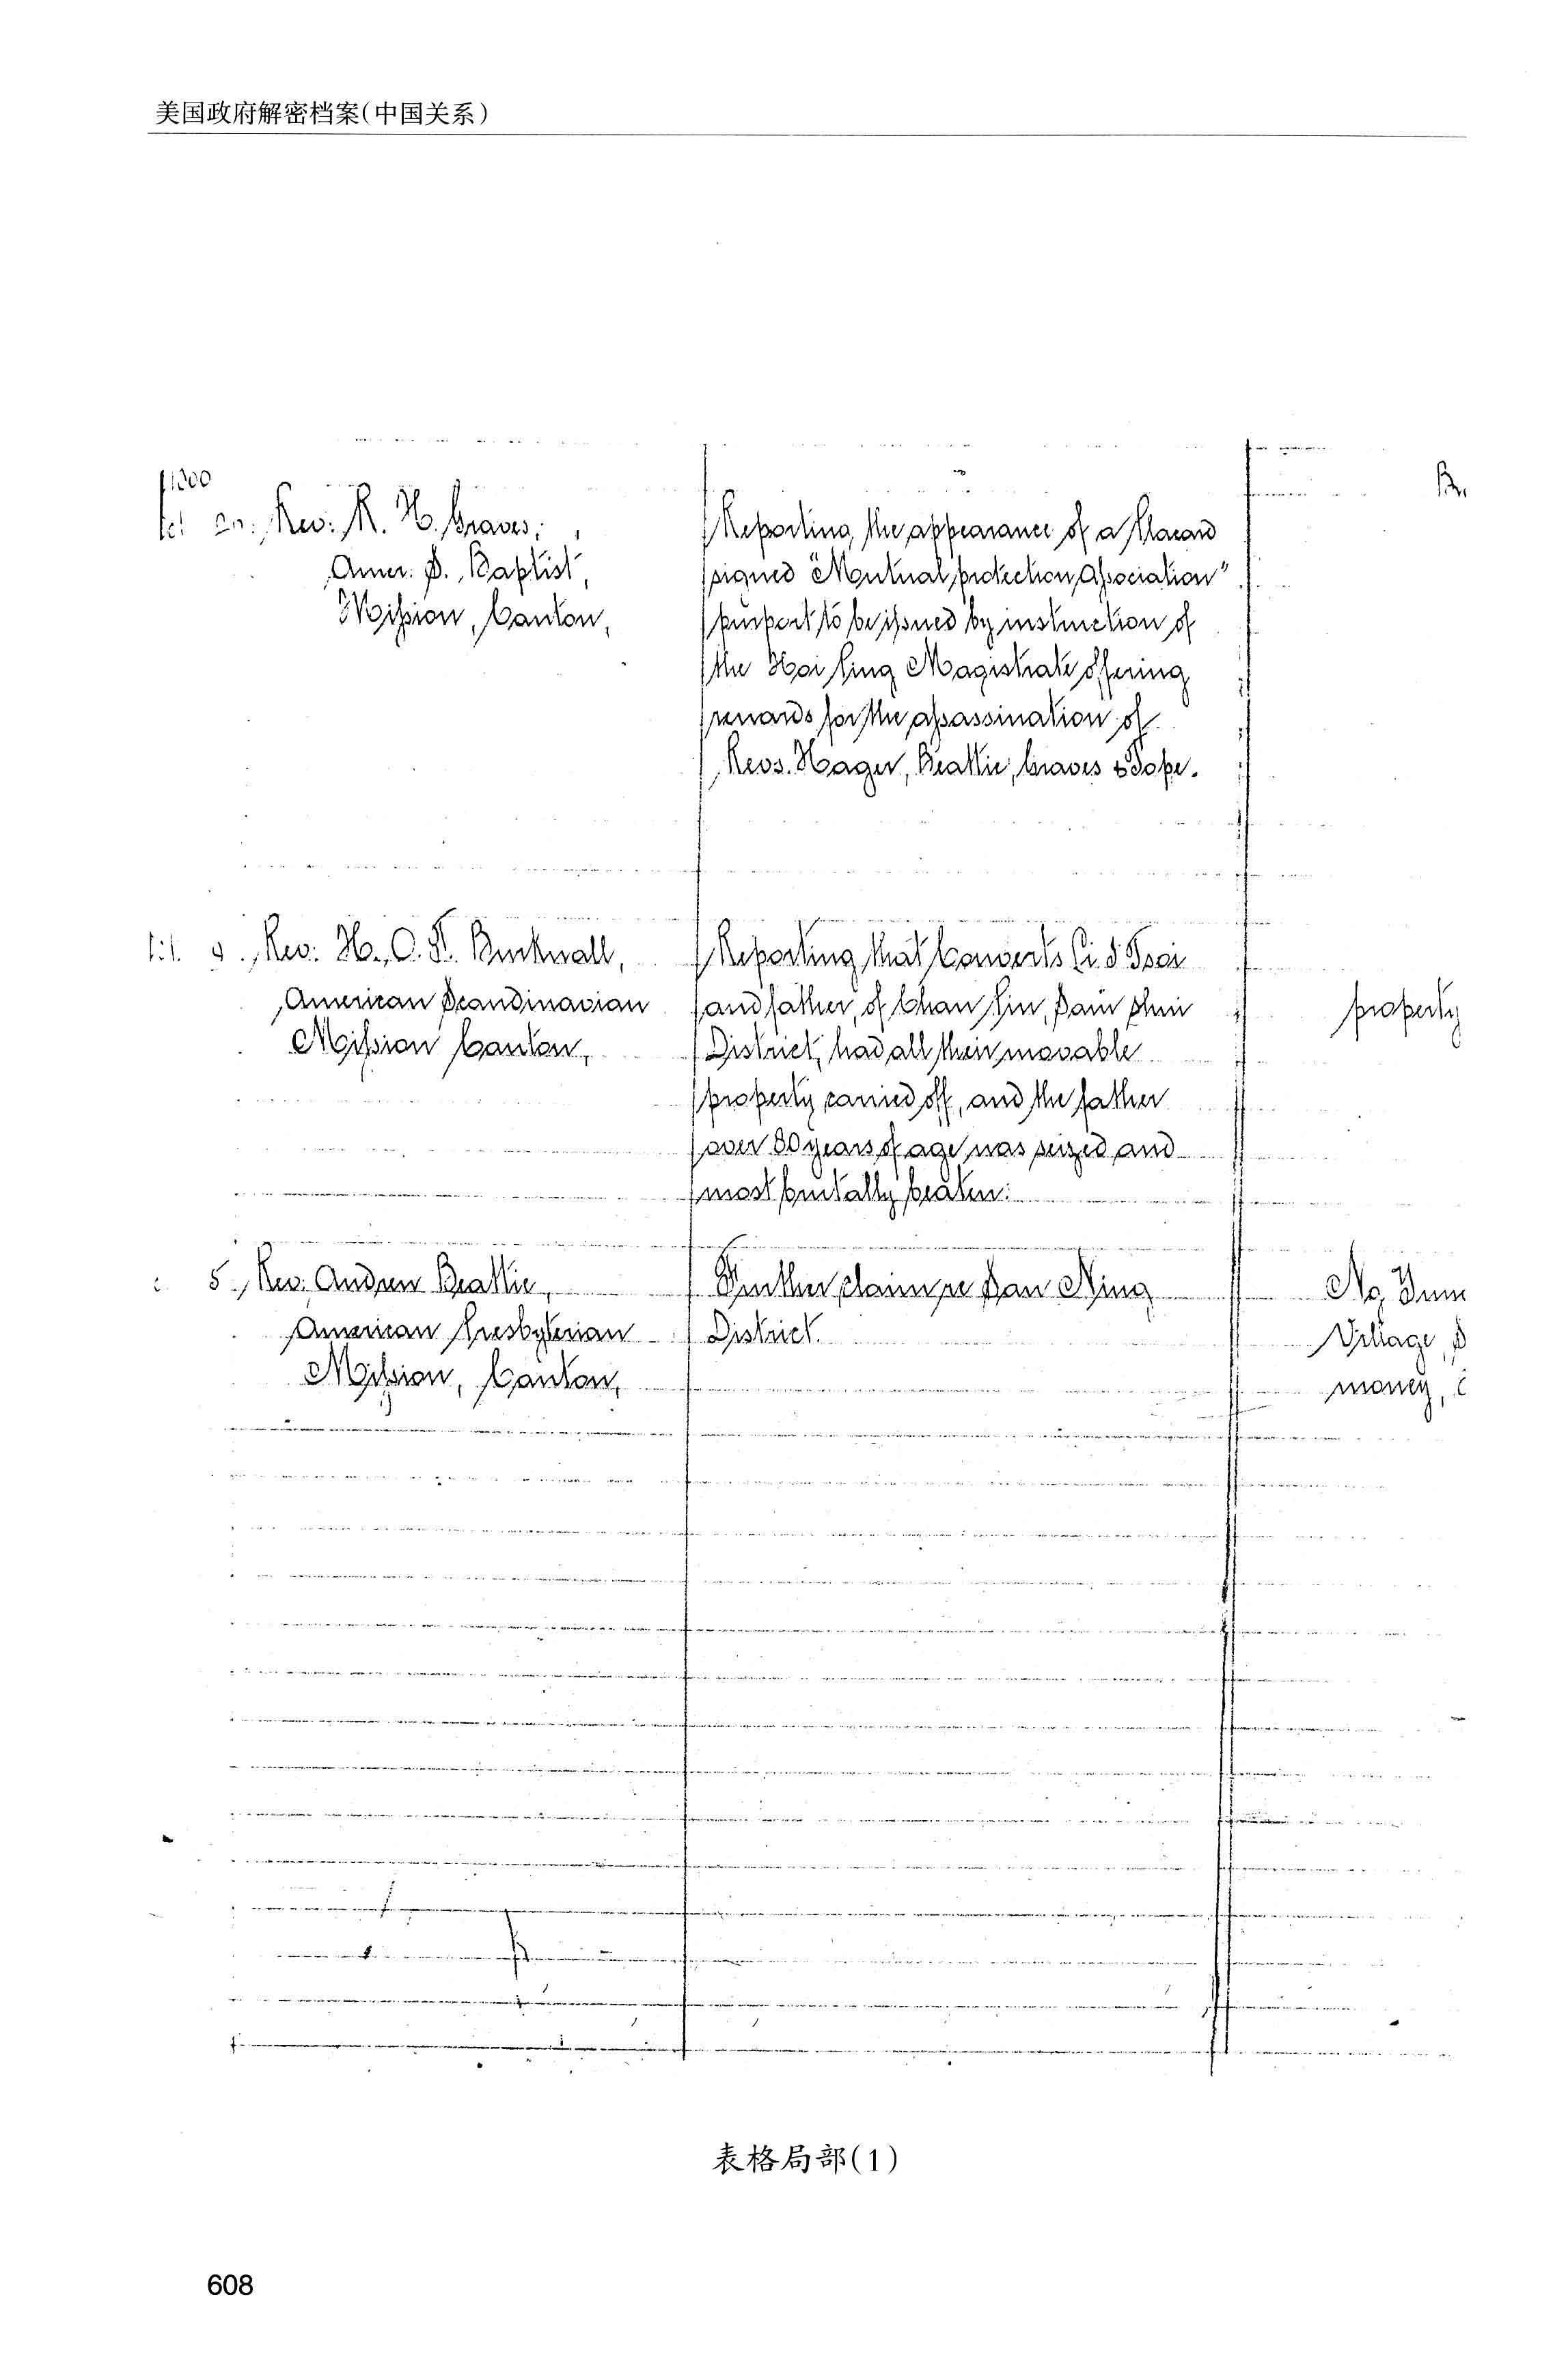 美国政府解密档案(中国关系)
1900
Rev. R. H. Graves,
Amer. S. Baptist
Mission, Canton,
Reporting the appearance of a Placard
signed "Mutual protection Association"
purport to be issued by instruction of
the Hoi Ping Magistrate offering
rewards for the assassination of
Revs. Hager, Beattie, Graves & Pope.
9. Rev. H. O. T. Burkwall,
American Scandinavian
Mission Canton,
Reporting that Converts
and father, of Chan
District, had all their movable
property carried off, and the father
over 80 years of age was seized and
most brutally beaten.
property
5. Rev. Andrew Beattie,
American Presbyterian
Mission, Canton,
Further claim re San Ning
District.
Village,
money,
表格局部(1)
608